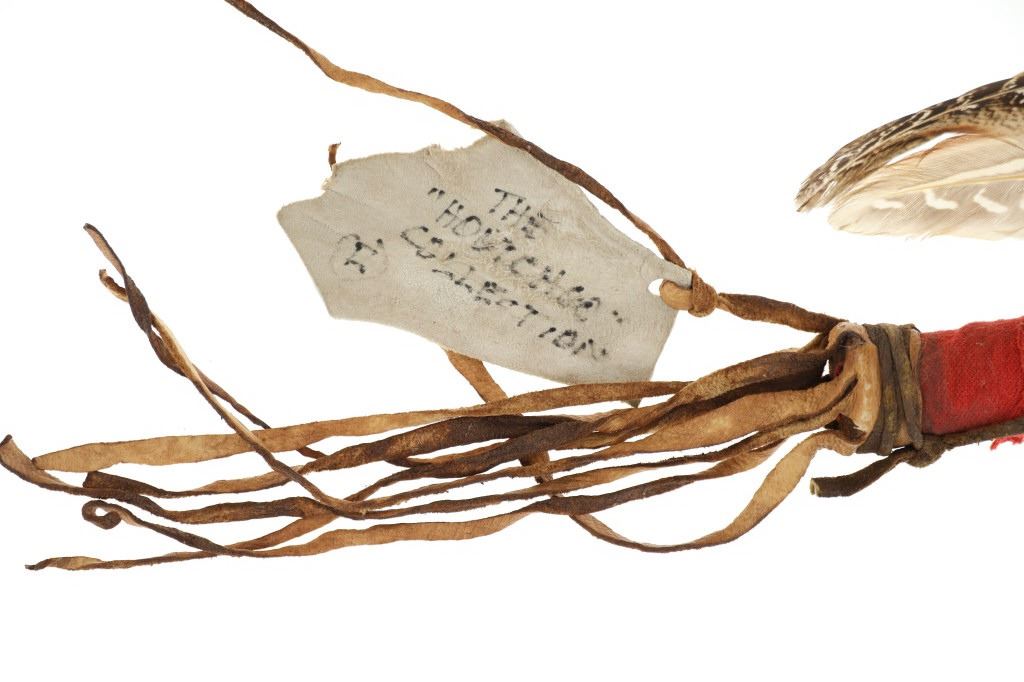 THE
"HOUTCHEE"
COLLECTION